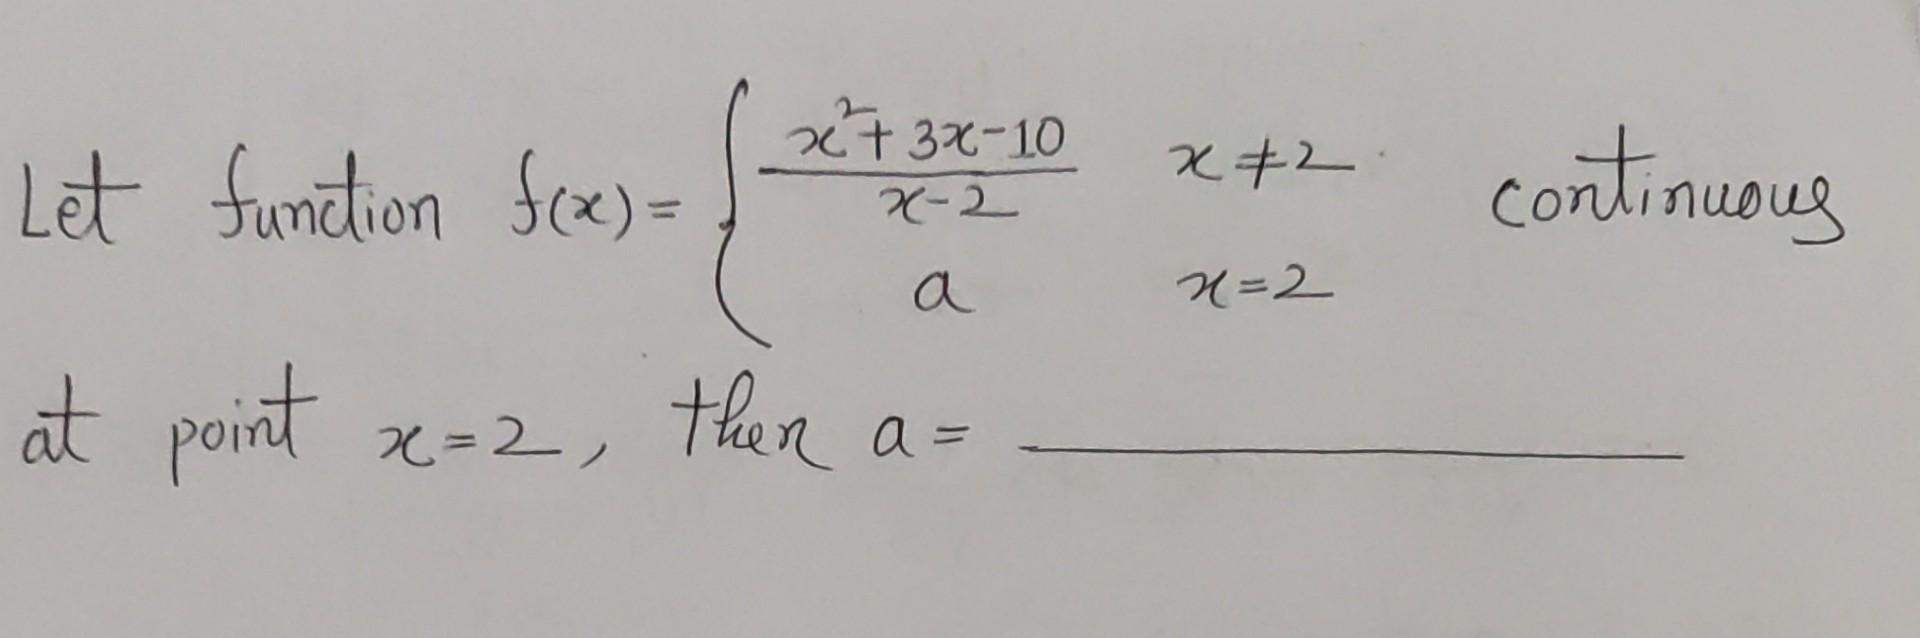 Let function f(x) = { (x² + 3x - 10)/(x - 2)   x ≠ 2   continuous
a   x = 2
at point x = 2, then a = ________